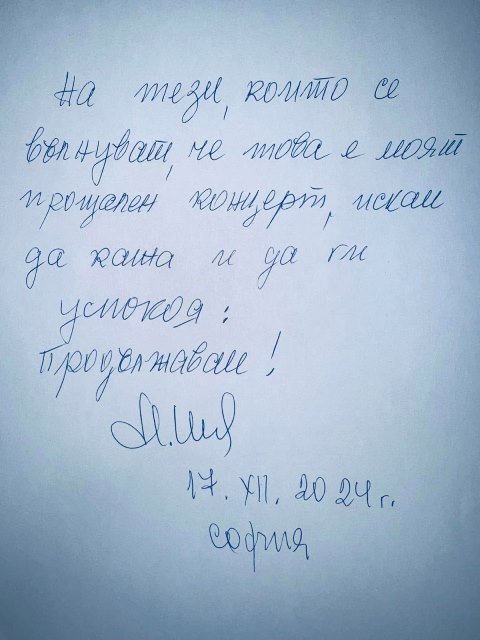 На тези, които се
вълнуват, че това е моят
прощален концерт, искам
да кажа и да ги
успокоя:
Продължавам!
17. XII. 2024 г.
София